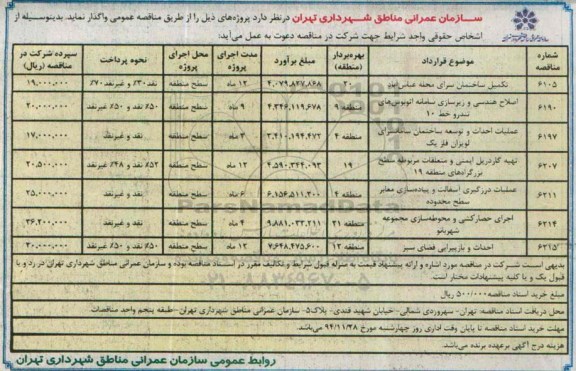 سازمان عمرانی مناطق شهرداری تهران درنظر دارد پروژه‌های ذیل را از طریق مناقصه عمومی واگذار نماید. بدینوسیله از
اشخاص حقوقی واجد شرایط جهت شرکت در مناقصه دعوت به عمل می‌آید:
شماره مناقصه موضوع قرارداد بهره‌بردار (منطقه) مبلغ برآورد مدت اجرای پروژه محل اجرای پروژه نحوه پرداخت سپرده شرکت در مناقصه (ریال)
۶۱۰۵ تکمیل ساختمان سرای محله عباس‌آباد ۴.۰۷۹.۸۲۷.۸۶۸ ۱۲ ماه سطح منطقه نقد۳۰٪ و غیرنقد۷۰٪ ۱۹,۰۰۰,۰۰۰
۶۱۹۰ اصلاح هندسی و زیرسازی سامانه اتوبوس‌های تندرو خط ۱۰ منطقه ۹ ۴.۳۴۶.۱۱۹.۶۷۸ ۹ ماه سطح منطقه ۵۰٪ نقد و ۵۰٪ غیرنقد ۲۰,۰۰۰,۰۰۰
۶۱۹۷ عملیات احداث و توسعه ساختمان لویزان فاز یک منطقه ۴ ۳.۴۱۰.۱۹۴.۴۷۲ ۳ ماه سطح منطقه نقد و غیرنقد ۱۷,۰۰۰,۰۰۰
۶۲۰۷ تهیه گاردریل ایمنی و متعلقات مربوطه سطح بزرگراه‌های منطقه ۱۹ ۱۹ ۴.۵۹۰.۳۴۴.۰۹۳ ۱۲ ماه سطح منطقه ۵۲٪ نقد و ۴۸٪ غیرنقد ۲۰,۵۰۰,۰۰۰
۶۲۱۱ عملیات درزگیری آسفالت و پیاده‌سازی معابر سطح محدوده منطقه ۴ ۶.۱۵۶.۵۱۱.۳۰۰ ۶ ماه سطح منطقه نقد و غیرنقد ۲۵,۰۰۰,۰۰۰
۶۲۱۴ اجرای حصارکشی و محوطه‌سازی مجموعه شهربانو منطقه ۲۱ ۹.۸۸۱.۰۳۳.۲۱۱ ۴ ماه سطح منطقه نقد و غیرنقد ۳۶,۲۰۰,۰۰۰
۶۲۱۵ احداث و بازپیرایی فضای سبز منطقه ۱۲ ۷.۶۴۸.۴۷۵.۶۰۰ ۱۲ ماه سطح منطقه ۵۰٪ نقد و ۵۰٪ غیرنقد ۳۰,۰۰۰,۰۰۰
بدیهی است شرکت در مناقصه مورد اشاره و ارائه پیشنهاد قیمت به منزله قبول شرایط و تکالیف مقرر در اسناد مناقصه بوده و سازمان عمرانی مناطق شهرداری تهران در رد و یا
قبول یک و یا کلیه پیشنهادات مختار است.
مبلغ خرید اسناد مناقصه ۵۰۰/۰۰۰ ریال
محل دریافت اسناد مناقصه: تهران - سهروردی شمالی- خیابان شهید قندی- پلاک۵- سازمان عمرانی مناطق شهرداری تهران- طبقه پنجم واحد مناقصات.
مهلت خرید اسناد مناقصه تا پایان وقت اداری روز چهارشنبه مورخ ۹۴/۱۱/۲۸ می‌باشد.
هزینه درج آگهی برعهده برنده می‌باشد.
روابط عمومی سازمان عمرانی مناطق شهرداری تهران
ParsNamadData
۰۲۱-۸۸۳۴۹۶۷۰-۵